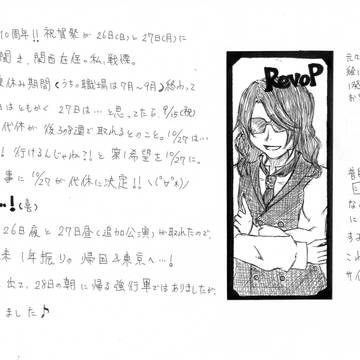 10周年!! 祝賀祭が 26日(日)と 27日(月)に
聞き、関西在住の私、戦慄。
夏休み期間(うちの職場は7月~9月)終わって
はともかく 27日は…と思ってたら 9/15(祝)
代休が 後3週で取れるとのこと。10/27は…
!行けるんじゃね?!と 第1希望を 10/27に。
事に 10/27が 代休に決定!! \(°∀°*)/
…!(喜)
26日夜と 27日昼(追加公演)が取れたので、
来 1年振りの 帰国&東京へ…!
出て、28日の朝に帰る強行軍ではありましたが、
ました♪
RevoP
元々
絵に
な
に
する
これ
サイ